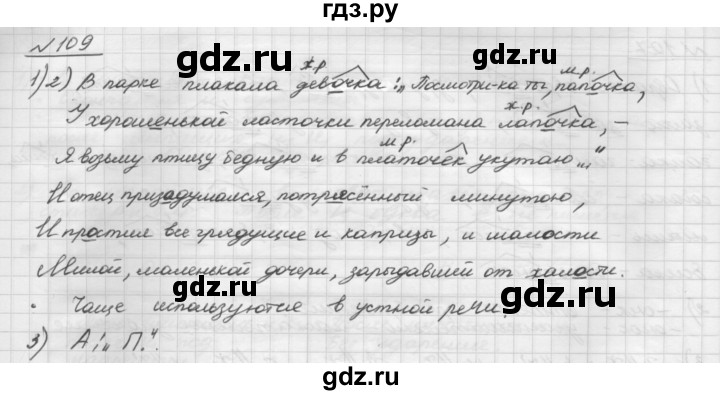 гдз.ру
№109
gdz.ru gdz.ru
ж.р. м.р.
1)2) В парке плакала девочка: „Посмотри-ка ты, папочка,
ж.р.
У хорошенькой ласточки переломана лапочка, –
м.р.
Я возьму птицу бедную и в платочек укутаю..."
gdz.ru gdz.ru
И отец призадумался, потрясённый минутою,
И простил все грядущие и капризы, и шалости
Милой, маленькой дочери, зарыдавшей от жалости.
gdz.ru gdz.ru
Чаще используются в устной речи.
3) А: „П."
gdz.ru